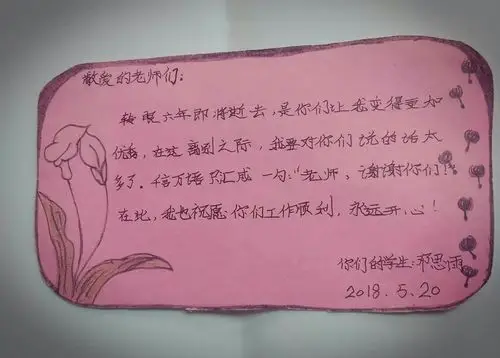 敬爱的老师们:
转眼六年即将逝去,是你们让我变得更加
优秀,在这离别之际,我要对你们说的话太
多了。信万语只汇成一句:“老师,谢谢你们!”
在此,我也祝愿你们工作顺利,永远开心!
你们的学生:思雨
2018.5.20